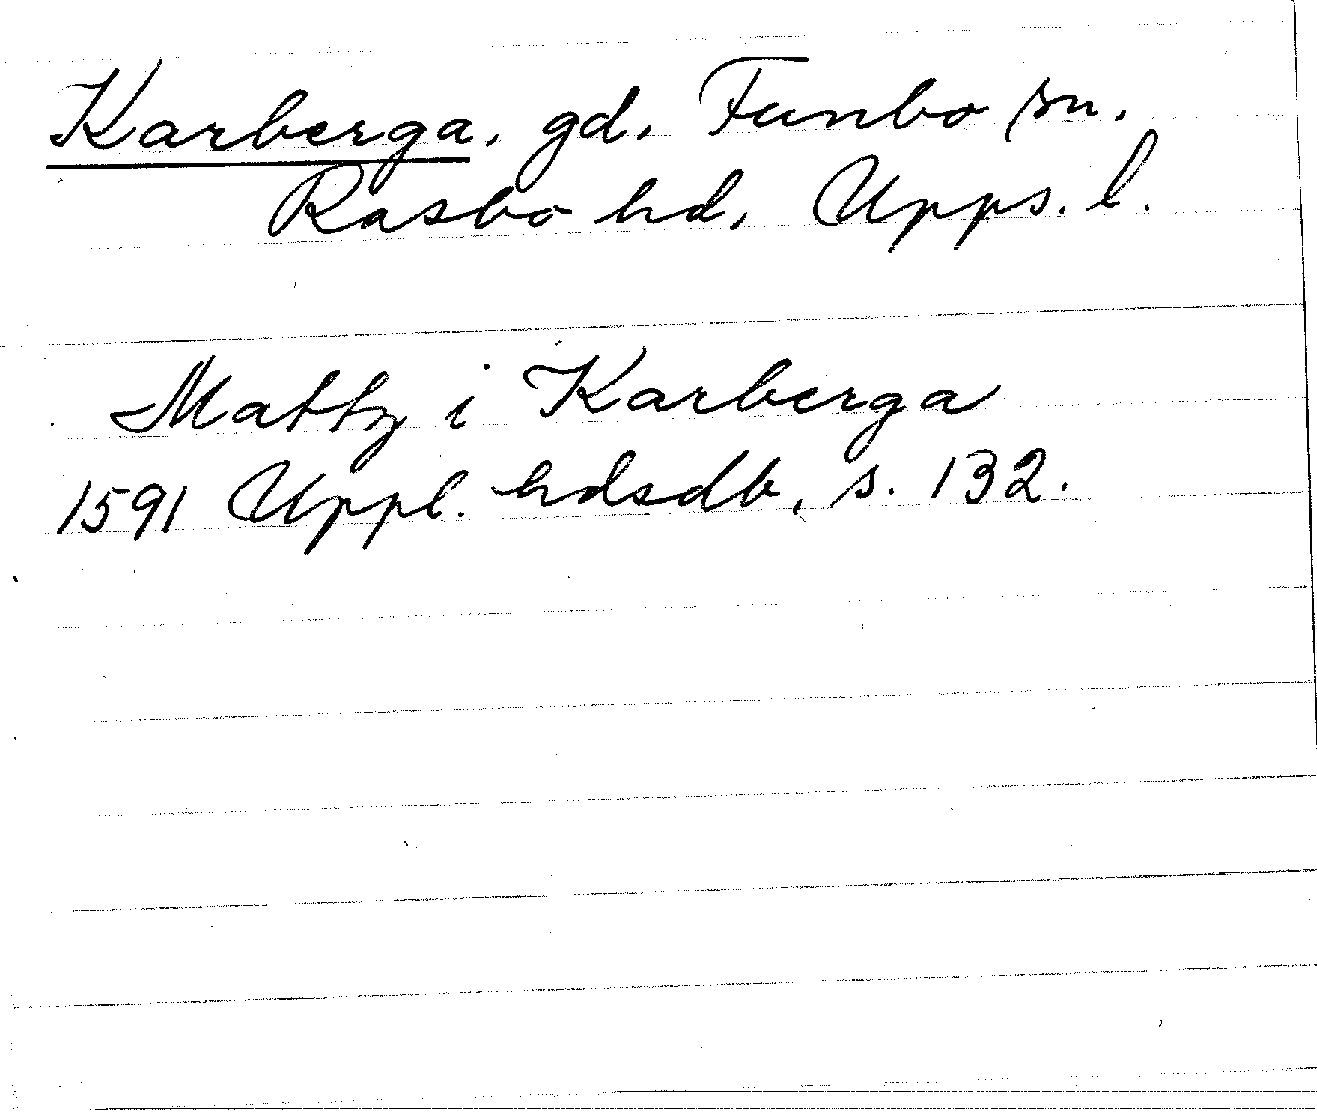 Karberga, gd, Funbo sn,
Rasbo hd, Upps. l.
Mattz i Karberga
1591 Uppl. hdsdb, s. 132.